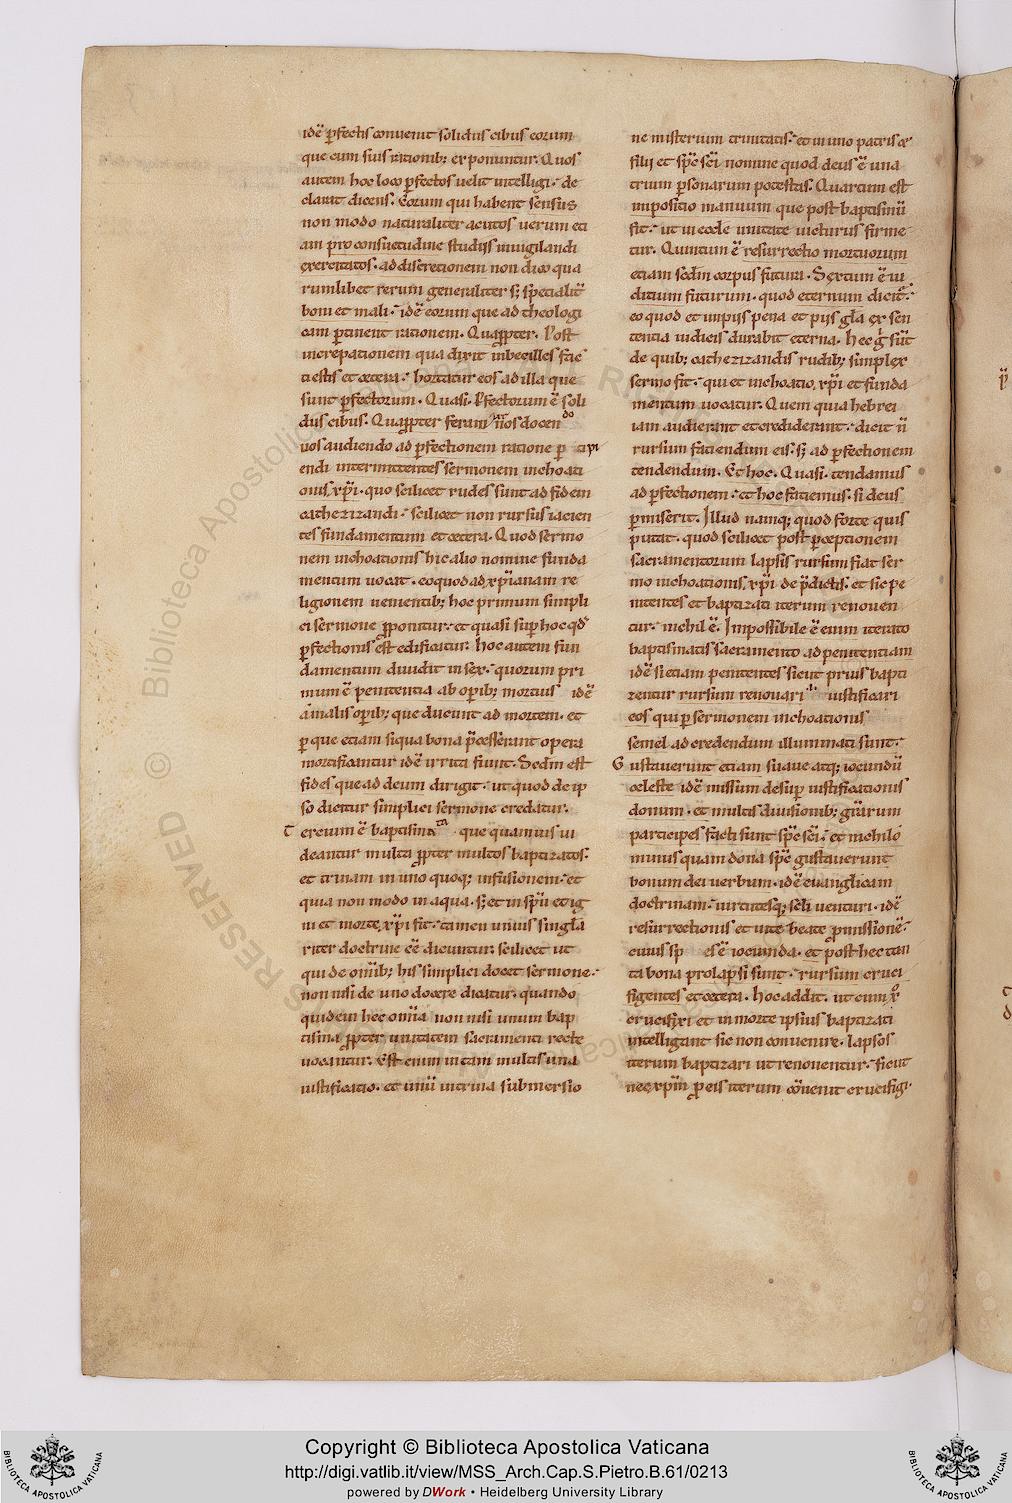 idē pfectis conuenit solidus cibus eorum
que cum suis rationib; exponuntur. Quos
autem hoc loco pfectos uelit intelligi. de
clarat dicens. Eorum qui habent sensus
non modo naturaliter acutos uerum eti
am pro consuetudine studijs inuigilandi
exercitatos. ad discretionem non dico qua
rumlibet rerum generaliter s; specialit̄
boni et mali. idē eorum que ad theologi
cam ptinent rationem. Quappter. Post
increpationem qua dixit inbecilles fac
ti estis et cetera. hortatur eos ad illa que
sunt pfectorum. Quasi. Pfectorum ē soli
dus cibus. Quappter
uos audiendo ad pfectionem ratione
endi intermittentes sermonem inchoati
onis xp̄i. quo scilicet rudes sunt ad fidem
cathezizandi. scilicet non rursus iacien
tes fundamentum et cetera. Quod sermo
nem inchoationis hic alio nomine funda
mentum uocat. eo quod ad xp̄ianam re
ligionem uenientib; hoc primum simpli
ci sermone pponitur. et quasi sup hoc qd
pfectionis est edificatur. hoc autem fun
damentum diuidit in sex. quorum pri
mum ē penitentia ab opib; mortuis idē
a malis opib; que ducunt ad mortem. et
p que etiam siqua bona p̄cesserant opera
mortificantur idē irrita fiunt. Scdm est
fides que ad deum dirigit. ut quod de ip
so dicitur simplici sermone credatur.
Tercium ē baptisma que quamuis ui
deantur multa ppter multos baptizatos.
et trinam in uno quoq; infusionem. et
quia non modo in aqua. s; et in sp̄u et ig
ni et morte xp̄i fit. tamen unius singla
riter doctrine eē dicuntur. scilicet ut
qui de om̄ib; his simplici docet sermone.
non nisi de uno docere dicatur. quando
quidem hec om̄ia non nisi unum bap
tisma ppter unitatem sacramenti recte
uocantur. Est enim in tam multis una
iustificatio. et unū in trina submersio
ne misterium trinitatis. et in uno patris &
filii et sp̄c sc̄i nomine quod deus ē una
trium psonarum potestas. Quartum est
impositio manuum que post baptismū
fit. ut in eccle unitate uicturus firme
tur. Quintum ē resurrectio mortuorum
etiam scdm corpus futura. Sextum ē iu
ditium futurum. quod eternum dicit̄.
eo quod et impijs pena et pijs gla ex sen
tentia iudicis durabit eterna. hec g sūt
de quib; cathezizandis rudib; simplex
sermo fit. qui et inchoatio xp̄i et funda
mentum uocatur. Quem quia hebrei
iam audierant et crediderant. dicit n̄
rursum faciendum eis. s; ad pfectionem
tendendum. Et hoc. Quasi. tendamus
ad pfectionem. et hoc faciemus. si deus
pmiserit. Illud namq; quod forte quis
putat. quod scilicet post pceptionem
sacramentorum lapsis rursum fiat ser
mo inchoationis xp̄i de p̄dictis. et sic pe
nitentes et baptizati iterum renouen
tur. nichil ē. Impossibile ē enim iterato
baptismatis sacramento ad penitentiam
idē si etiam penitentes sicut prius bapti
zentur rursum renouari iustificari
eos qui p sermonem inchoationis
semel ad credendum illuminati sunt.
Gustauerunt etiam suaue atq; iocundū
celeste idē missum desup iustificationis
donum. et multis diuisionib; grārum
participes facti sunt sp̄c sc̄i. et nichilo
minus quam dona sp̄c gustauerunt
bonum dei uerbum. idē euanglicam
doctrinam. uirtutesq; scli uenturi. idē
resurrectionis et uite beate pmissionē.
cuius sp es ē iocunda. et post hec tan
ta bona prolapsi sunt. rursum cruci
figentes et cetera. hoc addit. ut cum x̄o
crucifixi et in morte ipsius baptizati
intelligant sic non conuenire. lapsos
iterum baptizari ut renouentur. sicut
nec xp̄m p eis iterum cōuenit crucifigi.
© Biblioteca Apostolica Vaticana
RIGHTS RESERVED
Copyright © Biblioteca Apostolica Vaticana
http://digi.vatlib.it/view/MSS_Arch.Cap.S.Pietro.B.61/0213
powered by DWork • Heidelberg University Library
BIBLIOTECA APOSTOLICA VATICANA
BIBLIOTECA APOSTOLICA VATICANA